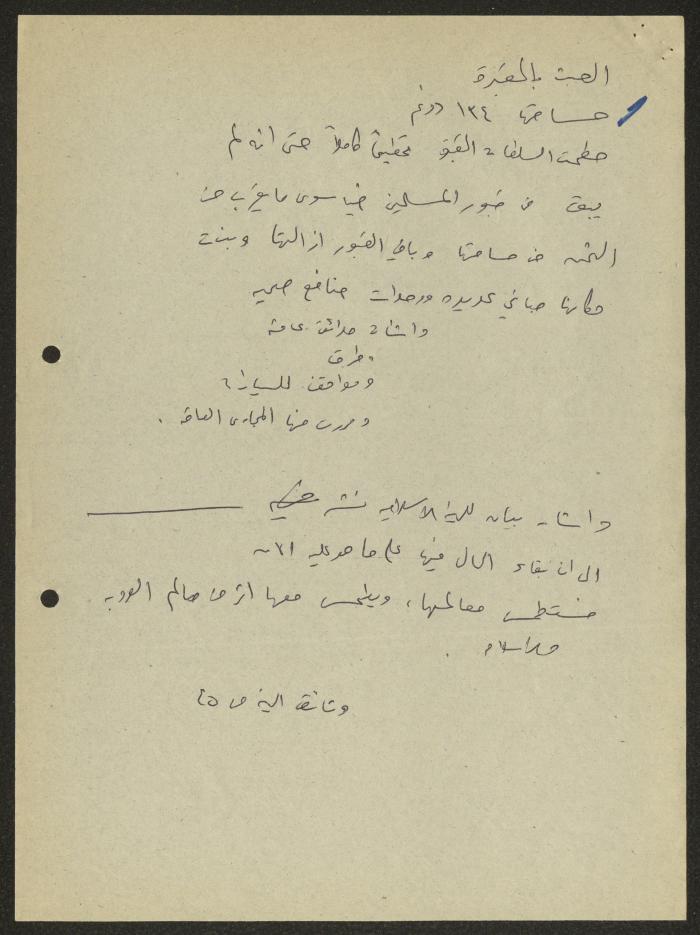 العبث بالمقبرة
مساحتها ١٣٤ دونم
حطمت السلطات القبور تحطيماً كاملاً حتى انه لم
يبق من قبور المسلمين فيها سوى ما يقرب من
الثمن من مساحتها وباقي القبور ازالتها وبنت
مكانها مباني عديده ووحدات منافع صحيه
وانشات حدائق عامة
وطرق
ومواقف للسيارات
ومررت منها المجاري العامة .
واشار بيان للهيئة الاسلامية نشر
الى ان بقاء الحال فيها على ما هو عليه الآن
ستطمس معالمها ، ويطمس معها اثر من معالم العروبه
والاسلام .
وثائق الهيئة ص ٤٥